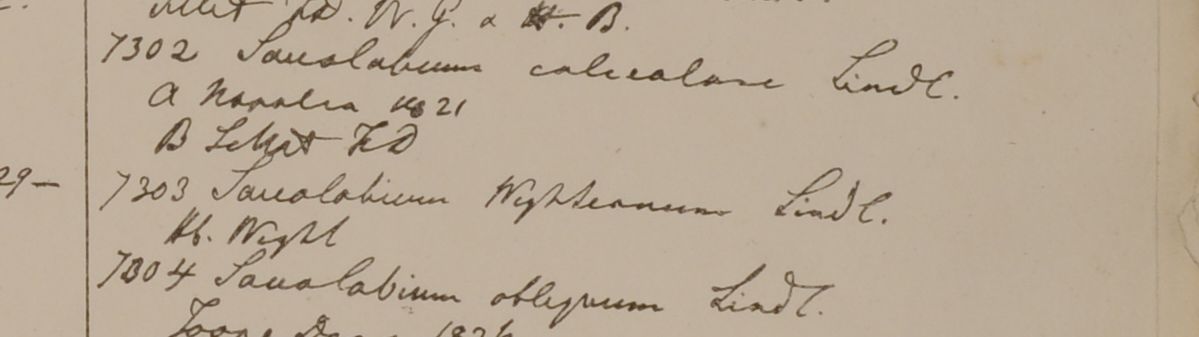 Silhet F.D. W. G. & H. B.
7302 Saccolabium calceolare Lindl.
A Napalia 1821
B Silhet F D
29—
7303 Saccolabium Wightianum Lindl.
Hb. Wight
7304 Saccolabium obliquum Lindl.